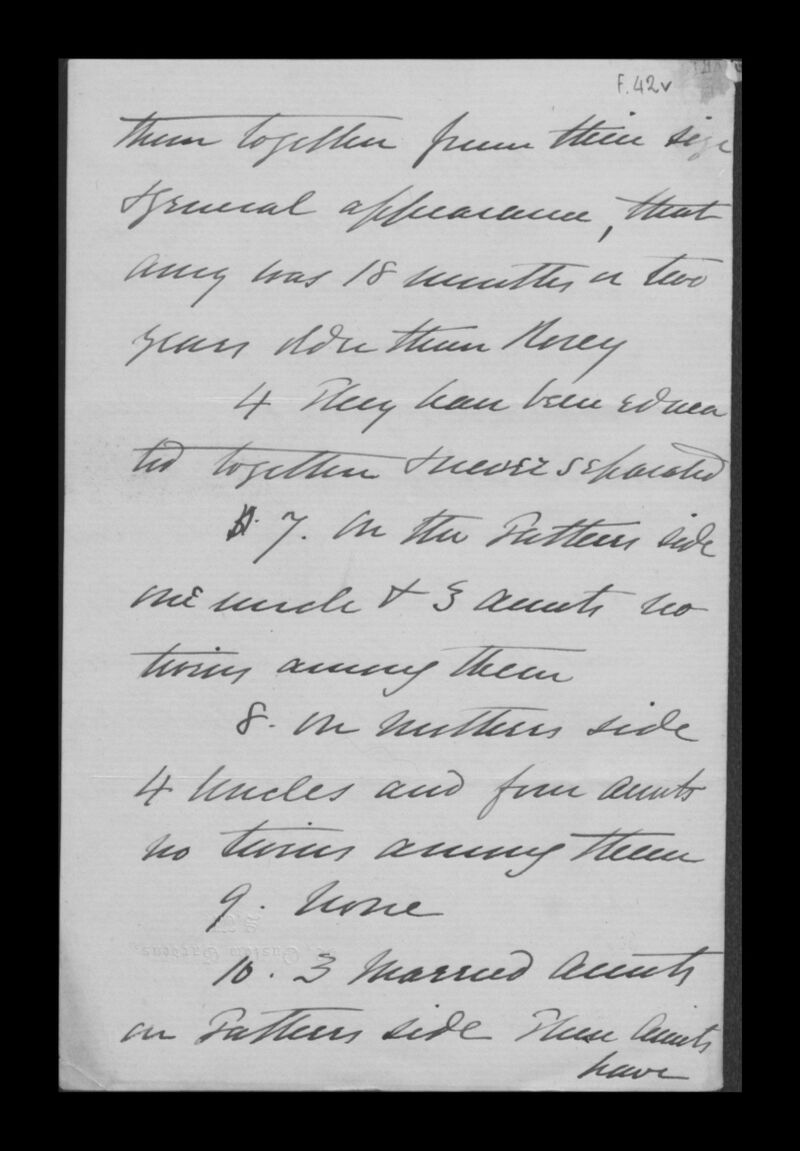 F.42v
them together from their size
& general appearance, that
Amy was 18 months or two
years older than Rosey
4 They have been educa
ted together & never separated
7. On the Fathers side
one uncle & 3 aunts no
twins among them
8. On mothers side
4 Uncles and four aunts
no twins among them
9. None
10. 3 Married Aunts
on Fathers side These Aunts
have